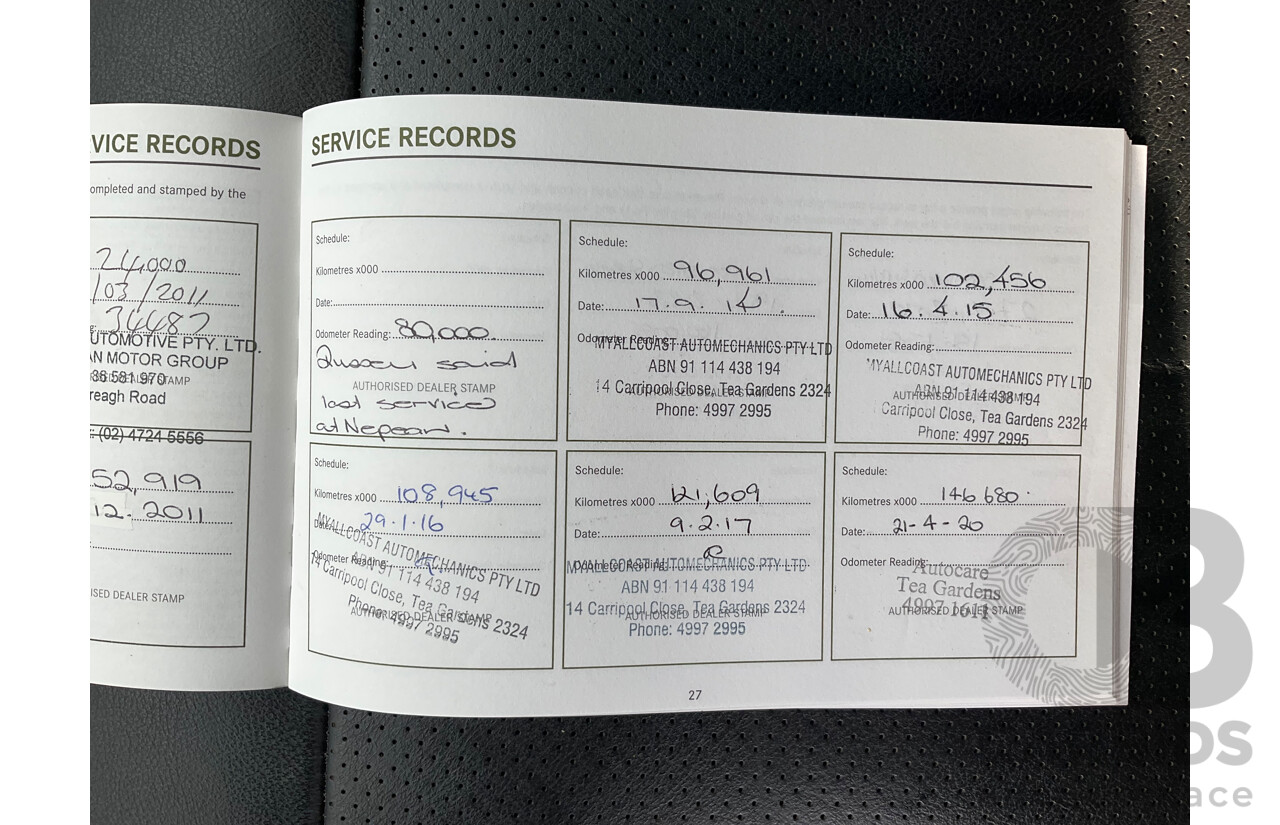 VICE RECORDS
ompleted and stamped by the
24,000
/03/2011
34487
UTOMOTIVE PTY. LTD.
N MOTOR GROUP
36 581 970
STAMP
reagh Road
: (02) 4724 5566
52,919
12. 2011
ISED DEALER STAMP
SERVICE RECORDS
Schedule:
Kilometres x000
Date:
Odometer Reading: 80,000.
said
AUTHORISED DEALER STAMP
last service
at Nepean.
Schedule:
Kilometres x000 96,961
Date: 17.9.14.
Odometer Reading:
MYALLCOAST AUTOMECHANICS PTY LTD
ABN 91 114 438 194
14 Carripool Close, Tea Gardens 2324
AUTHORISED DEALER STAMP
Phone: 4997 2995
Schedule:
Kilometres x000 102,456
Date: 16.4.15
Odometer Reading:
MYALLCOAST AUTOMECHANICS PTY LTD
ABN 91 114 438 194
AUTHORISED DEALER STAMP
Carripool Close, Tea Gardens 2324
Phone: 4997 2995
Schedule:
Kilometres x000 108,945
Date: 29.1.16
Odometer Reading:
MYALLCOAST AUTOMECHANICS PTY LTD
ABN 91 114 438 194
14 Carripool Close, Tea Gardens 2324
AUTHORISED DEALER STAMP
Phone: 4997 2995
Schedule:
Kilometres x000 121,609
Date: 9.2.17
Odometer Reading:
MYALLCOAST AUTOMECHANICS PTY LTD
ABN 91 114 438 194
14 Carripool Close, Tea Gardens 2324
AUTHORISED DEALER STAMP
Phone: 4997 2995
Schedule:
Kilometres x000 146 680.
Date: 21-4-20
Odometer Reading:
Autocare
Tea Gardens
4997 1611
AUTHORISED DEALER STAMP
27
os
ace